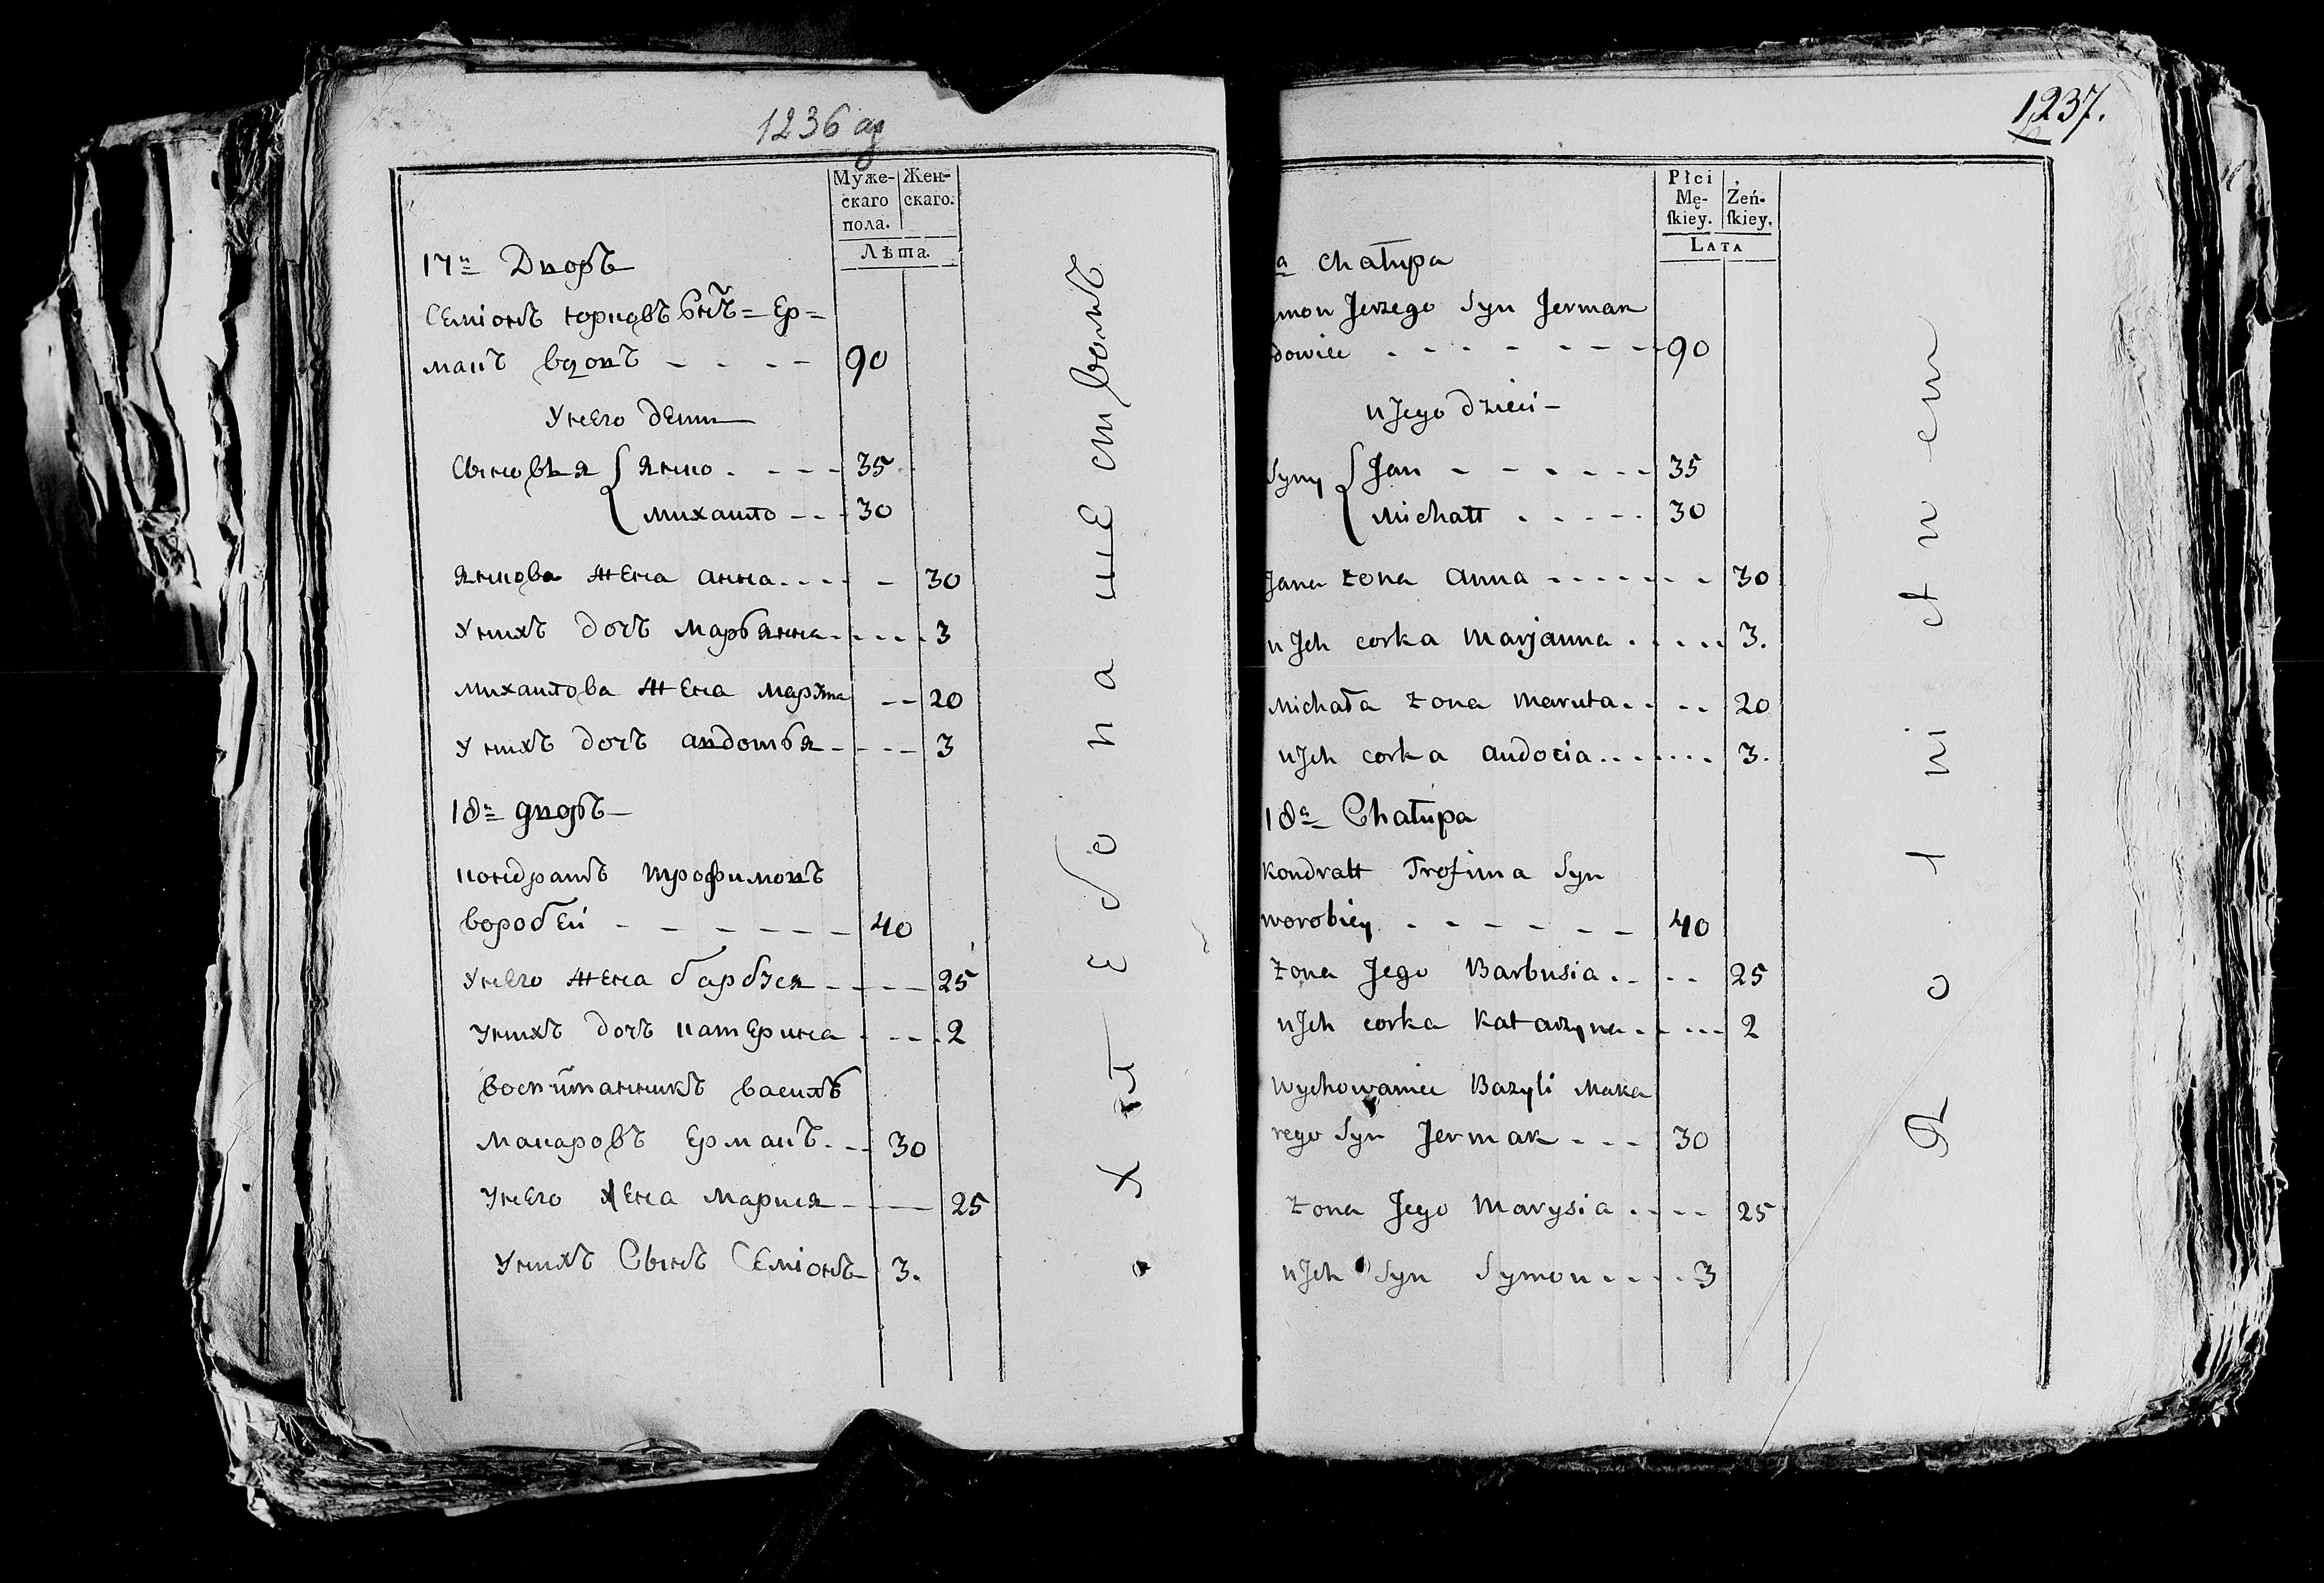 1236 об
Муже-
скаго
пола.
Жен-
скаго.
Лѣта.
17й Дворъ
Семіонъ юрковъ Снъ = Ер=
макъ вдовъ - - - - 90
Унего дети
Сыновья { янко - - - - 35
михаило - - - 30
янкова жена анна - - - - 30
Унихъ дочъ марьянна - - - - 3
михаилова жена марута - - 20
Унихъ дочъ авдотья - - - - 3
18й дворъ
кондратъ трофимовъ
воробеи - - - - - - 40
Унего жена барбуся - - - - 25
Унихъ дочъ катерина - - - - 2
воспитанникъ василь
макаровъ ермакъ - - - 30
Унего жена марися - - - - 25
Унихъ Сынъ Семіонъ 3.
хлебопашествомъ
1237.
Płci
Mę-
ſkiey.
Żeń-
ſkiey.
LATA
a Chałupa
mon Jerzego Syn Jermak
dowiec - - - - - - - 90
u Jego dzieci -
Syny { Jan - - - - - - 35
Michałł - - - - - 30
Jana żona Anna - - - - - - - 30
u Jch corka Marjanna - - - - - 3.
Michała żona Maruta - - - - 20
u Jch corka Audocia - - - - - - 3.
18a Chałupa
Kondratt Trofima Syn
worobiey - - - - - - 40
żona Jego Barbusia - - - - 25
u Jch corka Katarzyna - - - - - 2
Wychowaniec Bazyli Maka
rego Syn Jermak - - - 30
żona Jego Marysia - - - - 25
u Jch Syn Symon - - - - 3
Rolnictwem